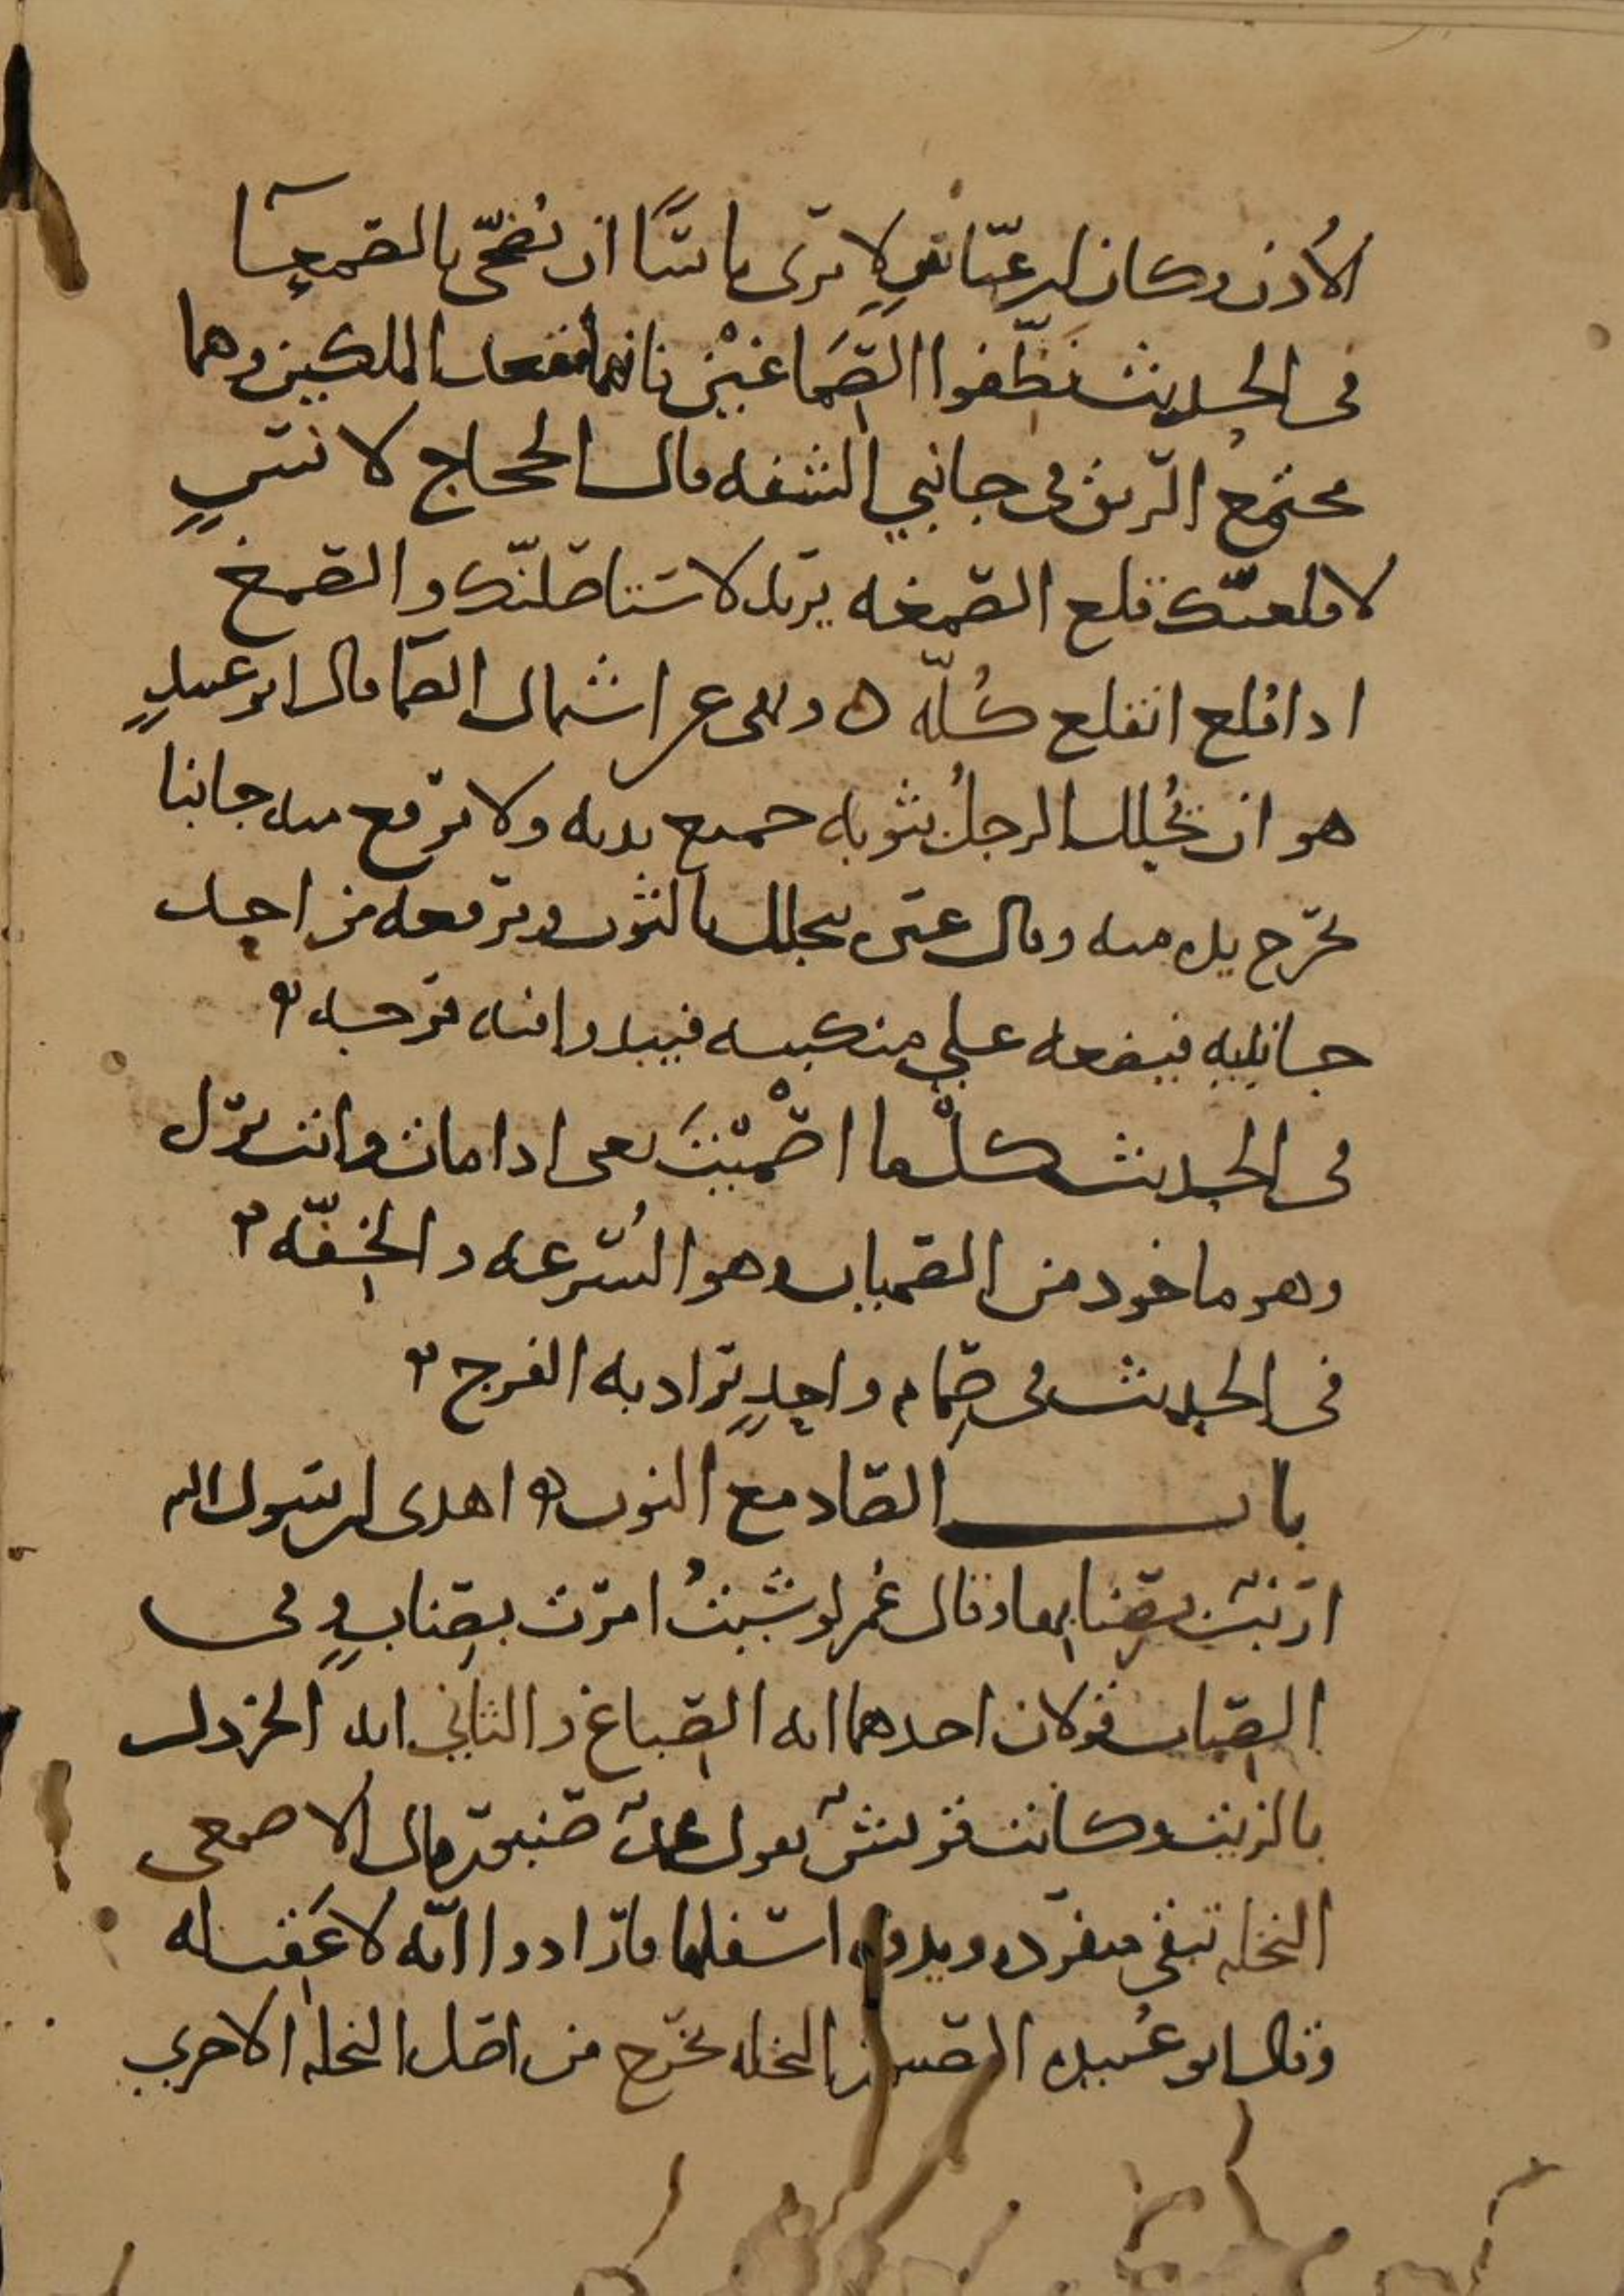 الأذن وكان ابن عباس لا يرى بأسا ان يضحى بالصمعآ
في الحديث نظفوا الصماغين فانهما مقعد الملكين وهما
مجتمع الريق في جانبي الشفه قال الحجاج لانسٍ
لاقلعنك قلع الصمغه يريد لاستاصلنك والصمغ
اذا قلع انقلع كله ٥ ونهى عن اشتمال الصما قال ابو عبيدٍ
هو ان يجلل الرجلُ بثوبه جميع بدنه ولا يرفع منه جانبا
تخرج يده منه وقال غيره يجلل بالثوب ويرفعه من احد
جانبيه فيضعه على منكبيه فيبدوا منه فرجه
في الحديث كل ما اصْمَيْتَ يعنى اذا مات وانت تراه
وهو ماخوذ من الصميان وهو السُّرعه والخِفّه
في الحديث في صِمام واحدٍ يراد به الفرج
باب الصاد مع النون اهدى لرسول الله
ارنب بصنابها وقال عُمر لو شئتُ امرت بصنابٍ وفى
الصِناب قولان احدهما انه الصِباغ والثاني انه الخردل
بالزيت وكانت قريش تقول محمد صنبور قال الاصمعى
النخله تبقى منفرده ويدق اسفلها فارادوا انه لا عَقِب له
وقال ابو عُبيده الصنبور النخله تخرج من اصل النخله الاخرى